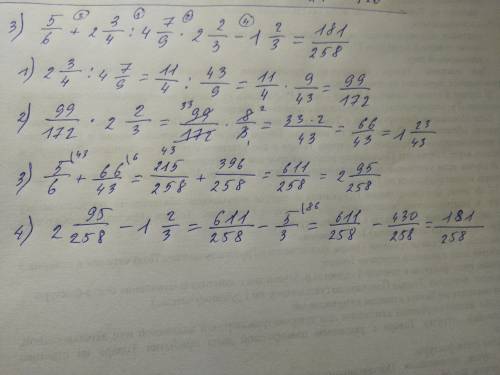 3) 5/6 + 2 3/4 : 4 7/9 · 2 2/3 − 1 2/3 = 181/258
1) 2 3/4 : 4 7/9 = 11/4 : 43/9 = 11/4 · 9/43 = 99/172
2) 99/172 · 2 2/3 = 99/172 · 8/3 = 33·2/43 = 66/43 = 1 23/43
3) 5/6 + 66/43 = 215/258 + 396/258 = 611/258 = 2 95/258
4) 2 95/258 − 1 2/3 = 611/258 − 5/3 = 611/258 − 430/258 = 181/258